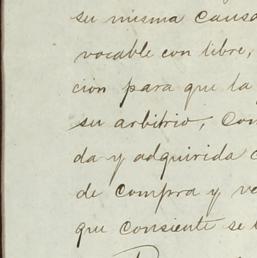 su misma causa
vocable con libre,
ción para que la
su arbitrio, Con
da y adquirida
de compra y ve
que consiente se